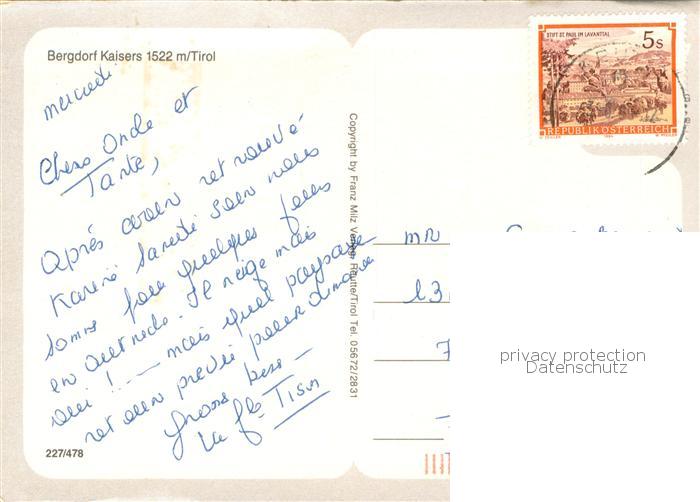 Bergdorf Kaisers 1522 m/Tirol
mercredi
Chers Oncle et
Tante,
Après avoir retrouvé
Karine samedi soir nous
sommes pour quelques jours
en Autriche. Il neige mais
oui !.-- mais quel paysage
retour prévu pour dimanche
grosse bises -
La fle Tison
227/478
Copyright by Franz Milz Verlag Reutte/Tirol Tel. 05672/2831
STIFT ST. PAUL IM LAVANTTAL
5s
REPUBLIK ÖSTERREICH
mr
13
7
privacy protection
Datenschutz